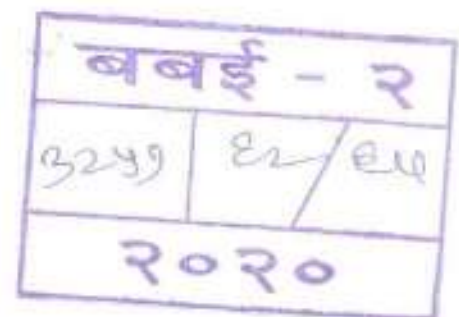 बबई - २
३२५१ ६२/६५
२०२०